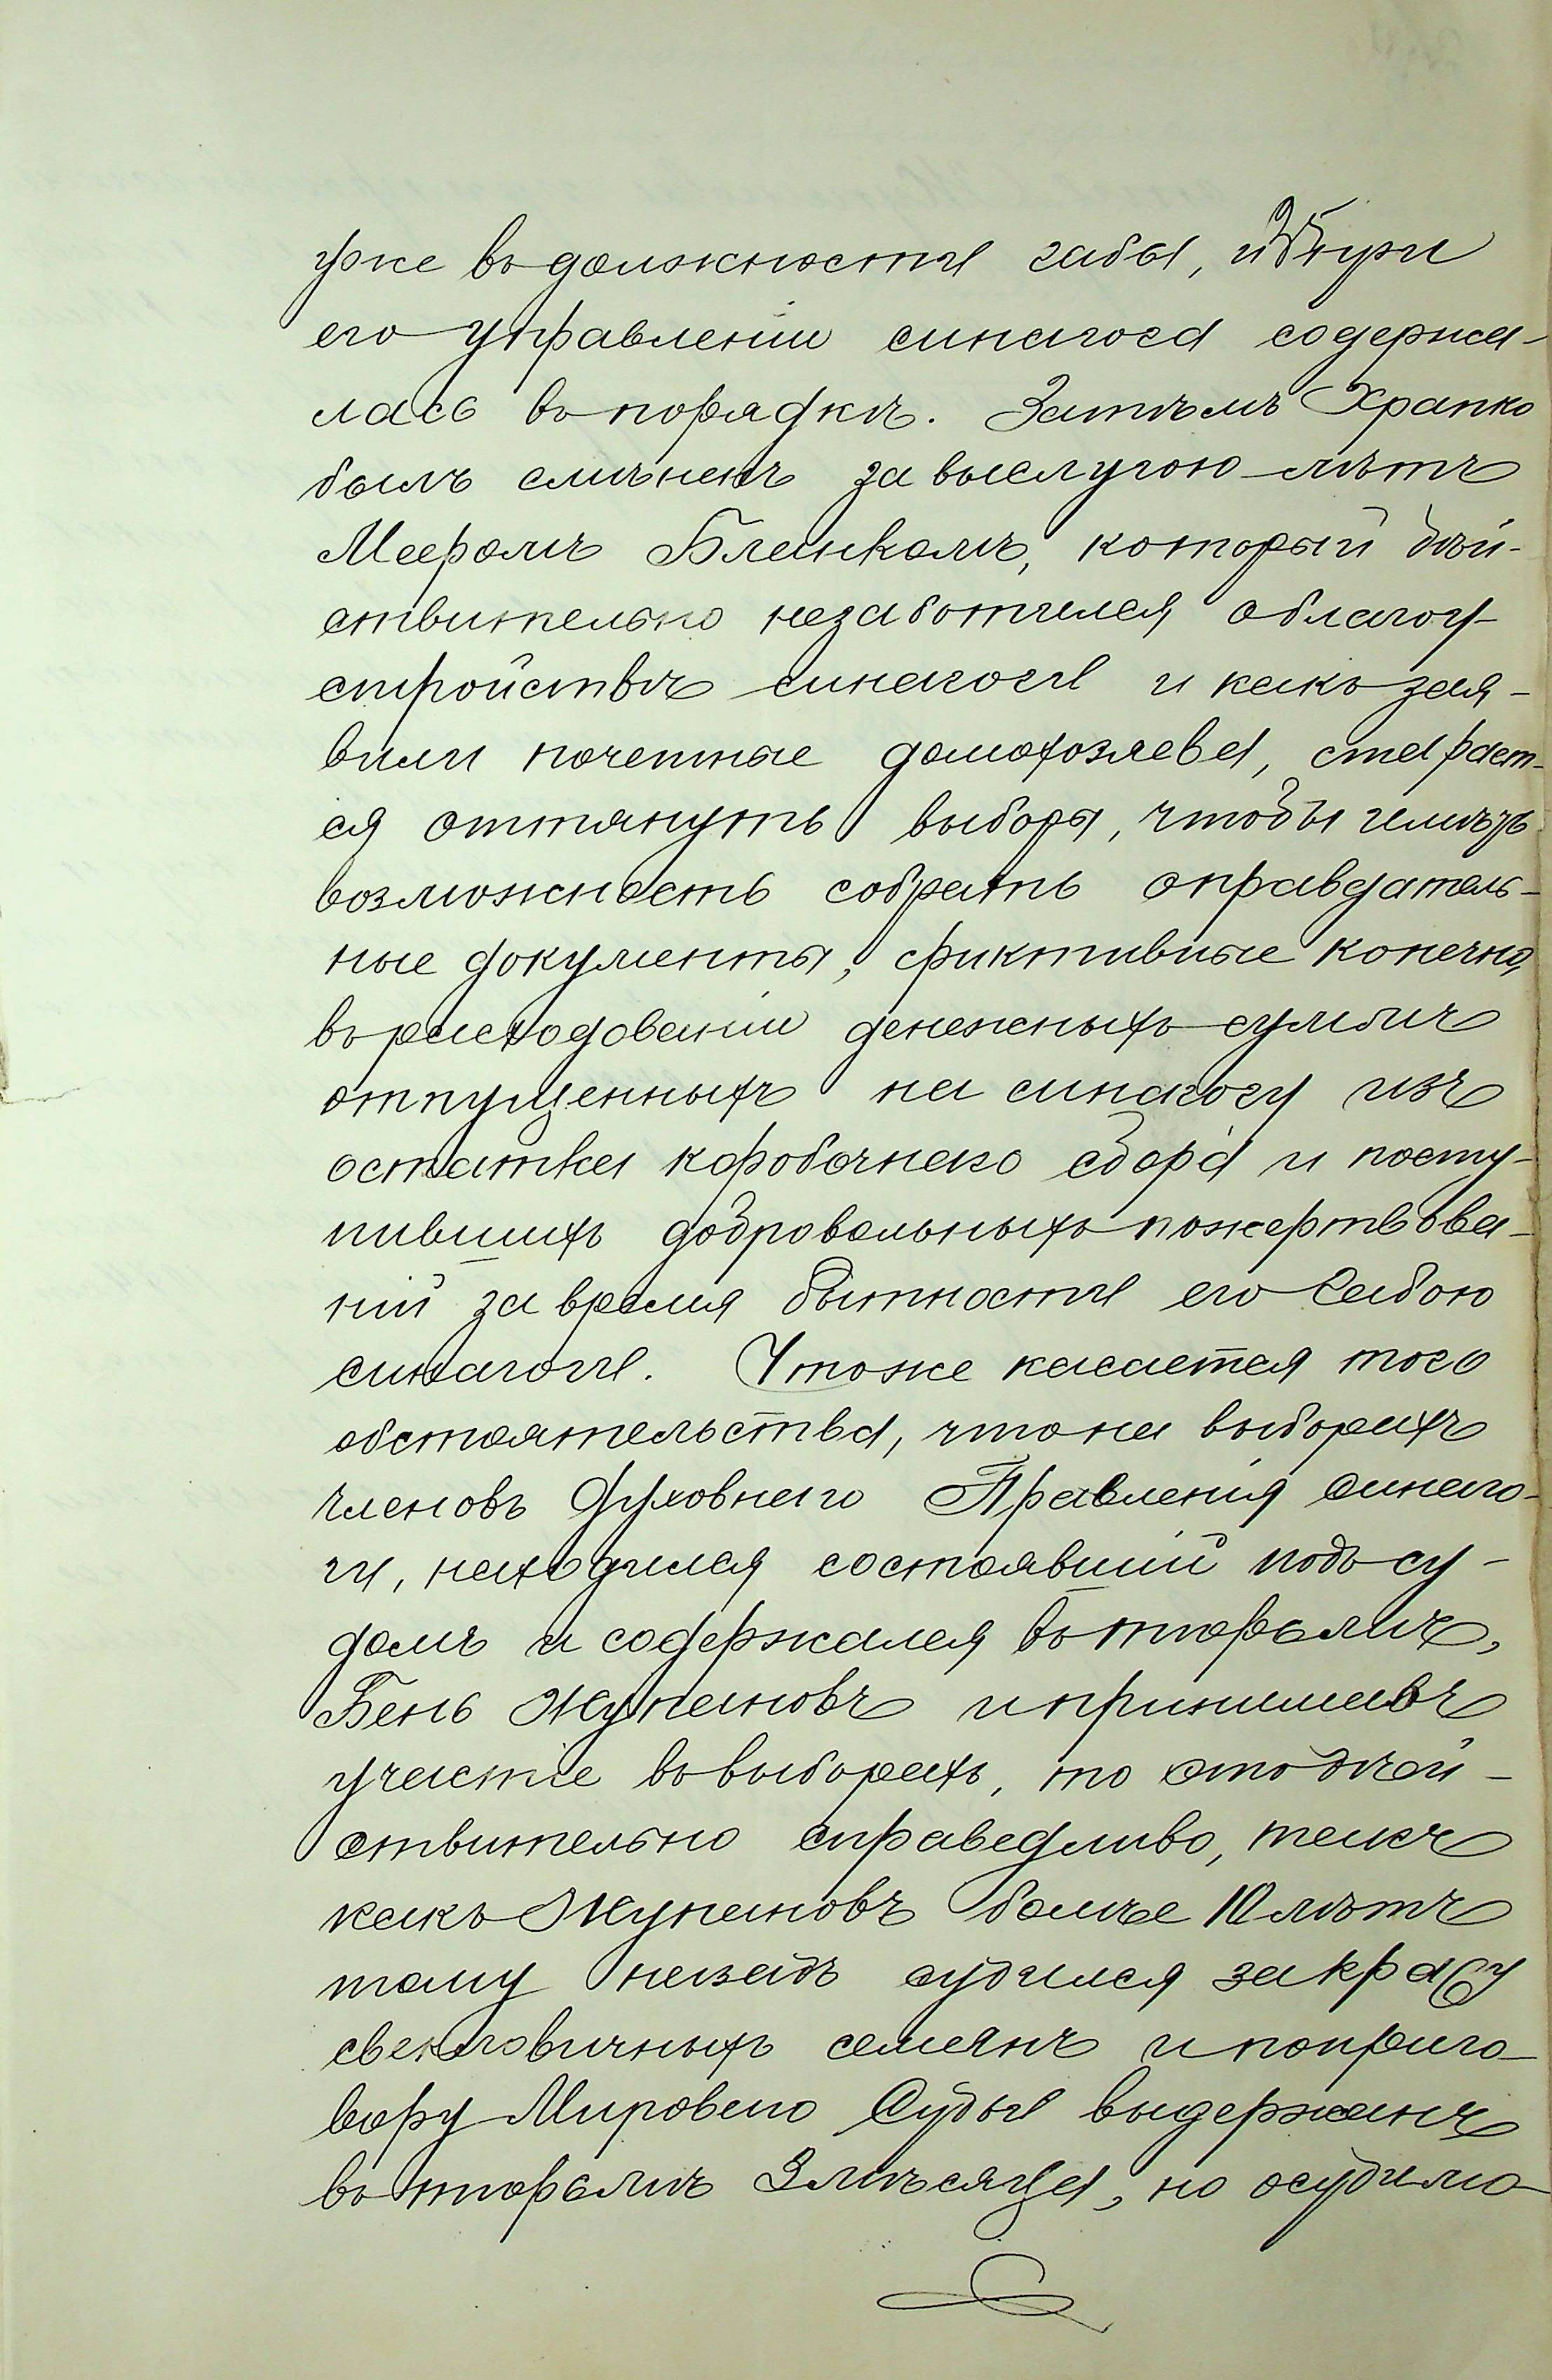 уже въ должности габы, и при
его управленіи синагога содержа-
лась въ порядкѣ. Затѣмъ Храпко
былъ смѣненъ за выслугою лѣтъ
Мееромъ Бланкомъ, который дѣй-
ствительно незаботился о благоу-
стройствѣ синагоги и какъ зая-
вили почетные домохозяева, старает-
ся оттянуть выборы, чтобы имѣть
возможность собрать оправдатель-
ные документы, фиктивные конечно,
въ расходованіи денежныхъ суммъ
отпущенныхъ на синагогу изъ
остатка коробочнаго сбора и посту-
пившихъ добровольныхъ пожертвова-
ній за время бытности его Габою
синагоги. Чтоже касается того
обстоятельства, что на выборахъ
членовъ Духовнаго Правленія синаго-
ги, находился состоявшій подъ су-
домъ и содержался въ тюрьмѣ,
Бень Жупановъ и принималъ
участіе въ выборахъ, то это дѣй-
ствительно справедливо, такъ
какъ Жупановъ болѣе 10 лѣтъ
тому назадъ судился за кражу
свекловичныхъ семянъ и по приго-
вору Мироваго Судьи выдержанъ
въ тюрьмѣ 3 мѣсяца, но осудимо-